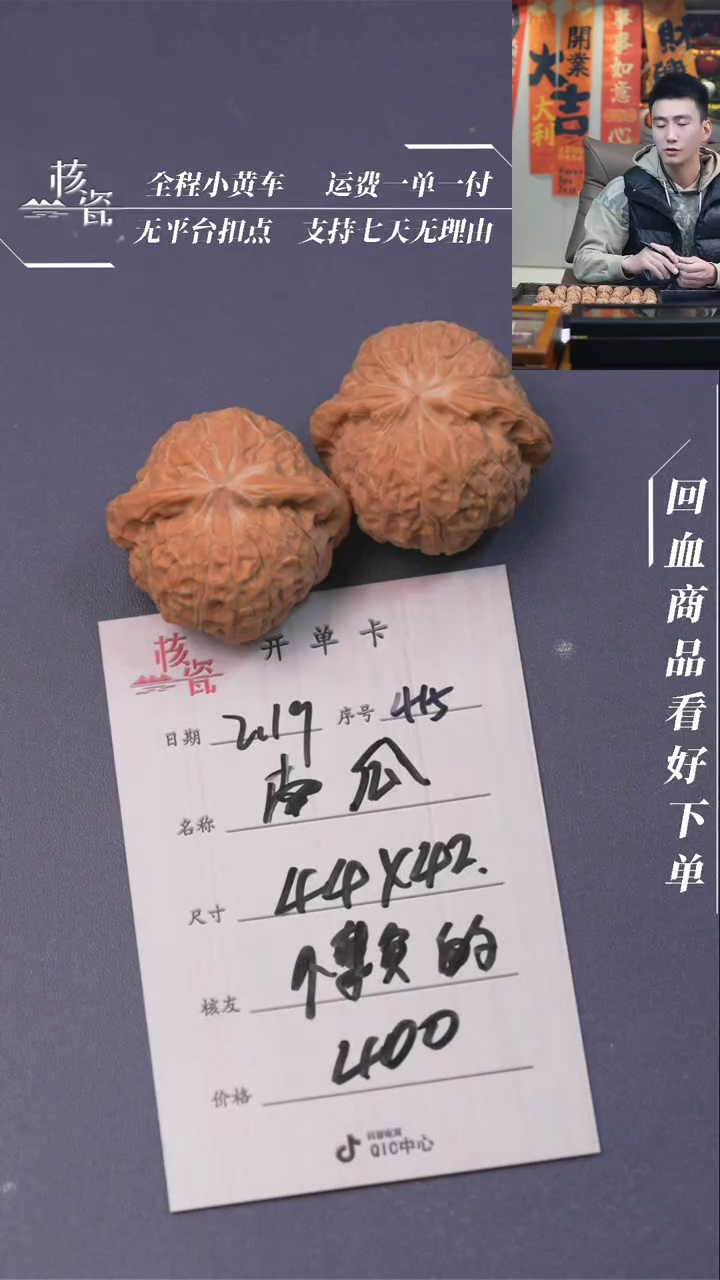 核瓷
全程小黄车 运费一单一付
无平台扣点 支持七天无理由
開業
大吉
大利
事事如意
心
财
回血商品看好下单
核瓷
开单卡
日期 2019 序号 415
名称 南瓜
尺寸 44X42.
核友 博负的
价格 400
抖音电商
QIC中心